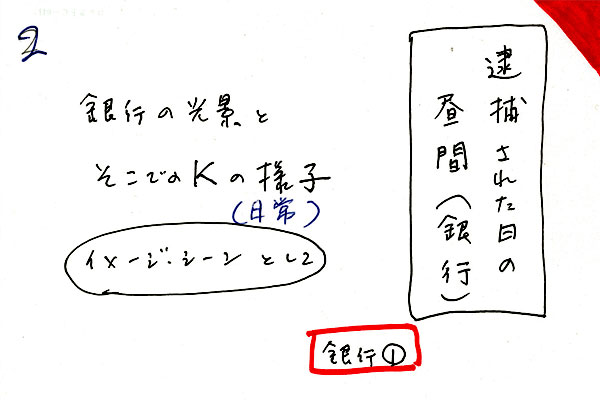 2
逮捕された日の
昼間(銀行)
銀行の光景と
そこでのKの様子
(日常)
イメージ・シーンとして
銀行①